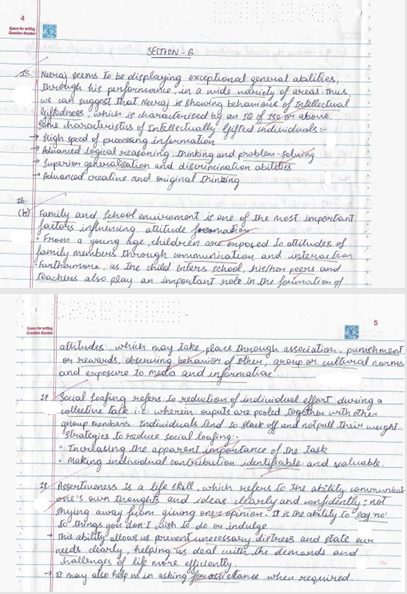 4
Space for writing
Question Number
SECTION-B
15. Neeraj seems to be displaying exceptional general abilities,
through his performance, in a wide variety of areas. Thus,
we can suggest that Neeraj is showing behaviours of Intellectual
Giftedness, which is characterised by an IQ of 130 or above.
Some characteristics of Intellectually Gifted individuals:-
→ High speed of processing information
→ Advanced logical reasoning thinking and problem-solving
→ Superior generalization and discrimination abilities
→ Advanced creative and original thinking
16.
(b) Family and School enviroment is one of the most important
factors influencing attitude formation.
• From a young age, children are exposed to attitudes of
family members through communication and interaction
• Furthermore, as the child enters school, his/her peers and
teachers also play an important role in the formation of
Space for writing
Question Number
5
attitudes, which may take place through association, punishment
or rewards, observing behavior of other, group or cultural norms
and exposure to media and information
17. Social loafing refers to reduction of individual effort during a
collective task i.e. wherein ouputs are pooled together with other
group members. Individuals tend to slack off and not pull their weight.
Strategies to reduce social loafing:-
• Increasing the apparent importance of the task
• making individual contribution identifiable and valuable.
18. Assertiveness is a life skill, which refers to the ability communicate
one's own thoughts and ideas clearly and confidently; not
shying away from giving one's opinion. It is the ability to say no'
to things you don't wish to do or indulge
→ This ability allows us prevent unecessary distress and state our
needs clearly, helping us deal with the demands and
challenges of life more efficiently.
→ It may also help us in asking for assistance when required.